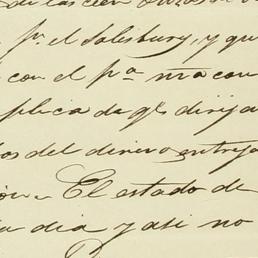 de las cien
pr. el Salesbury, y qu
con el pa. m/a con
plica da qe. dirija
os del dinero entreja
ion. El estado de
dia y asi no